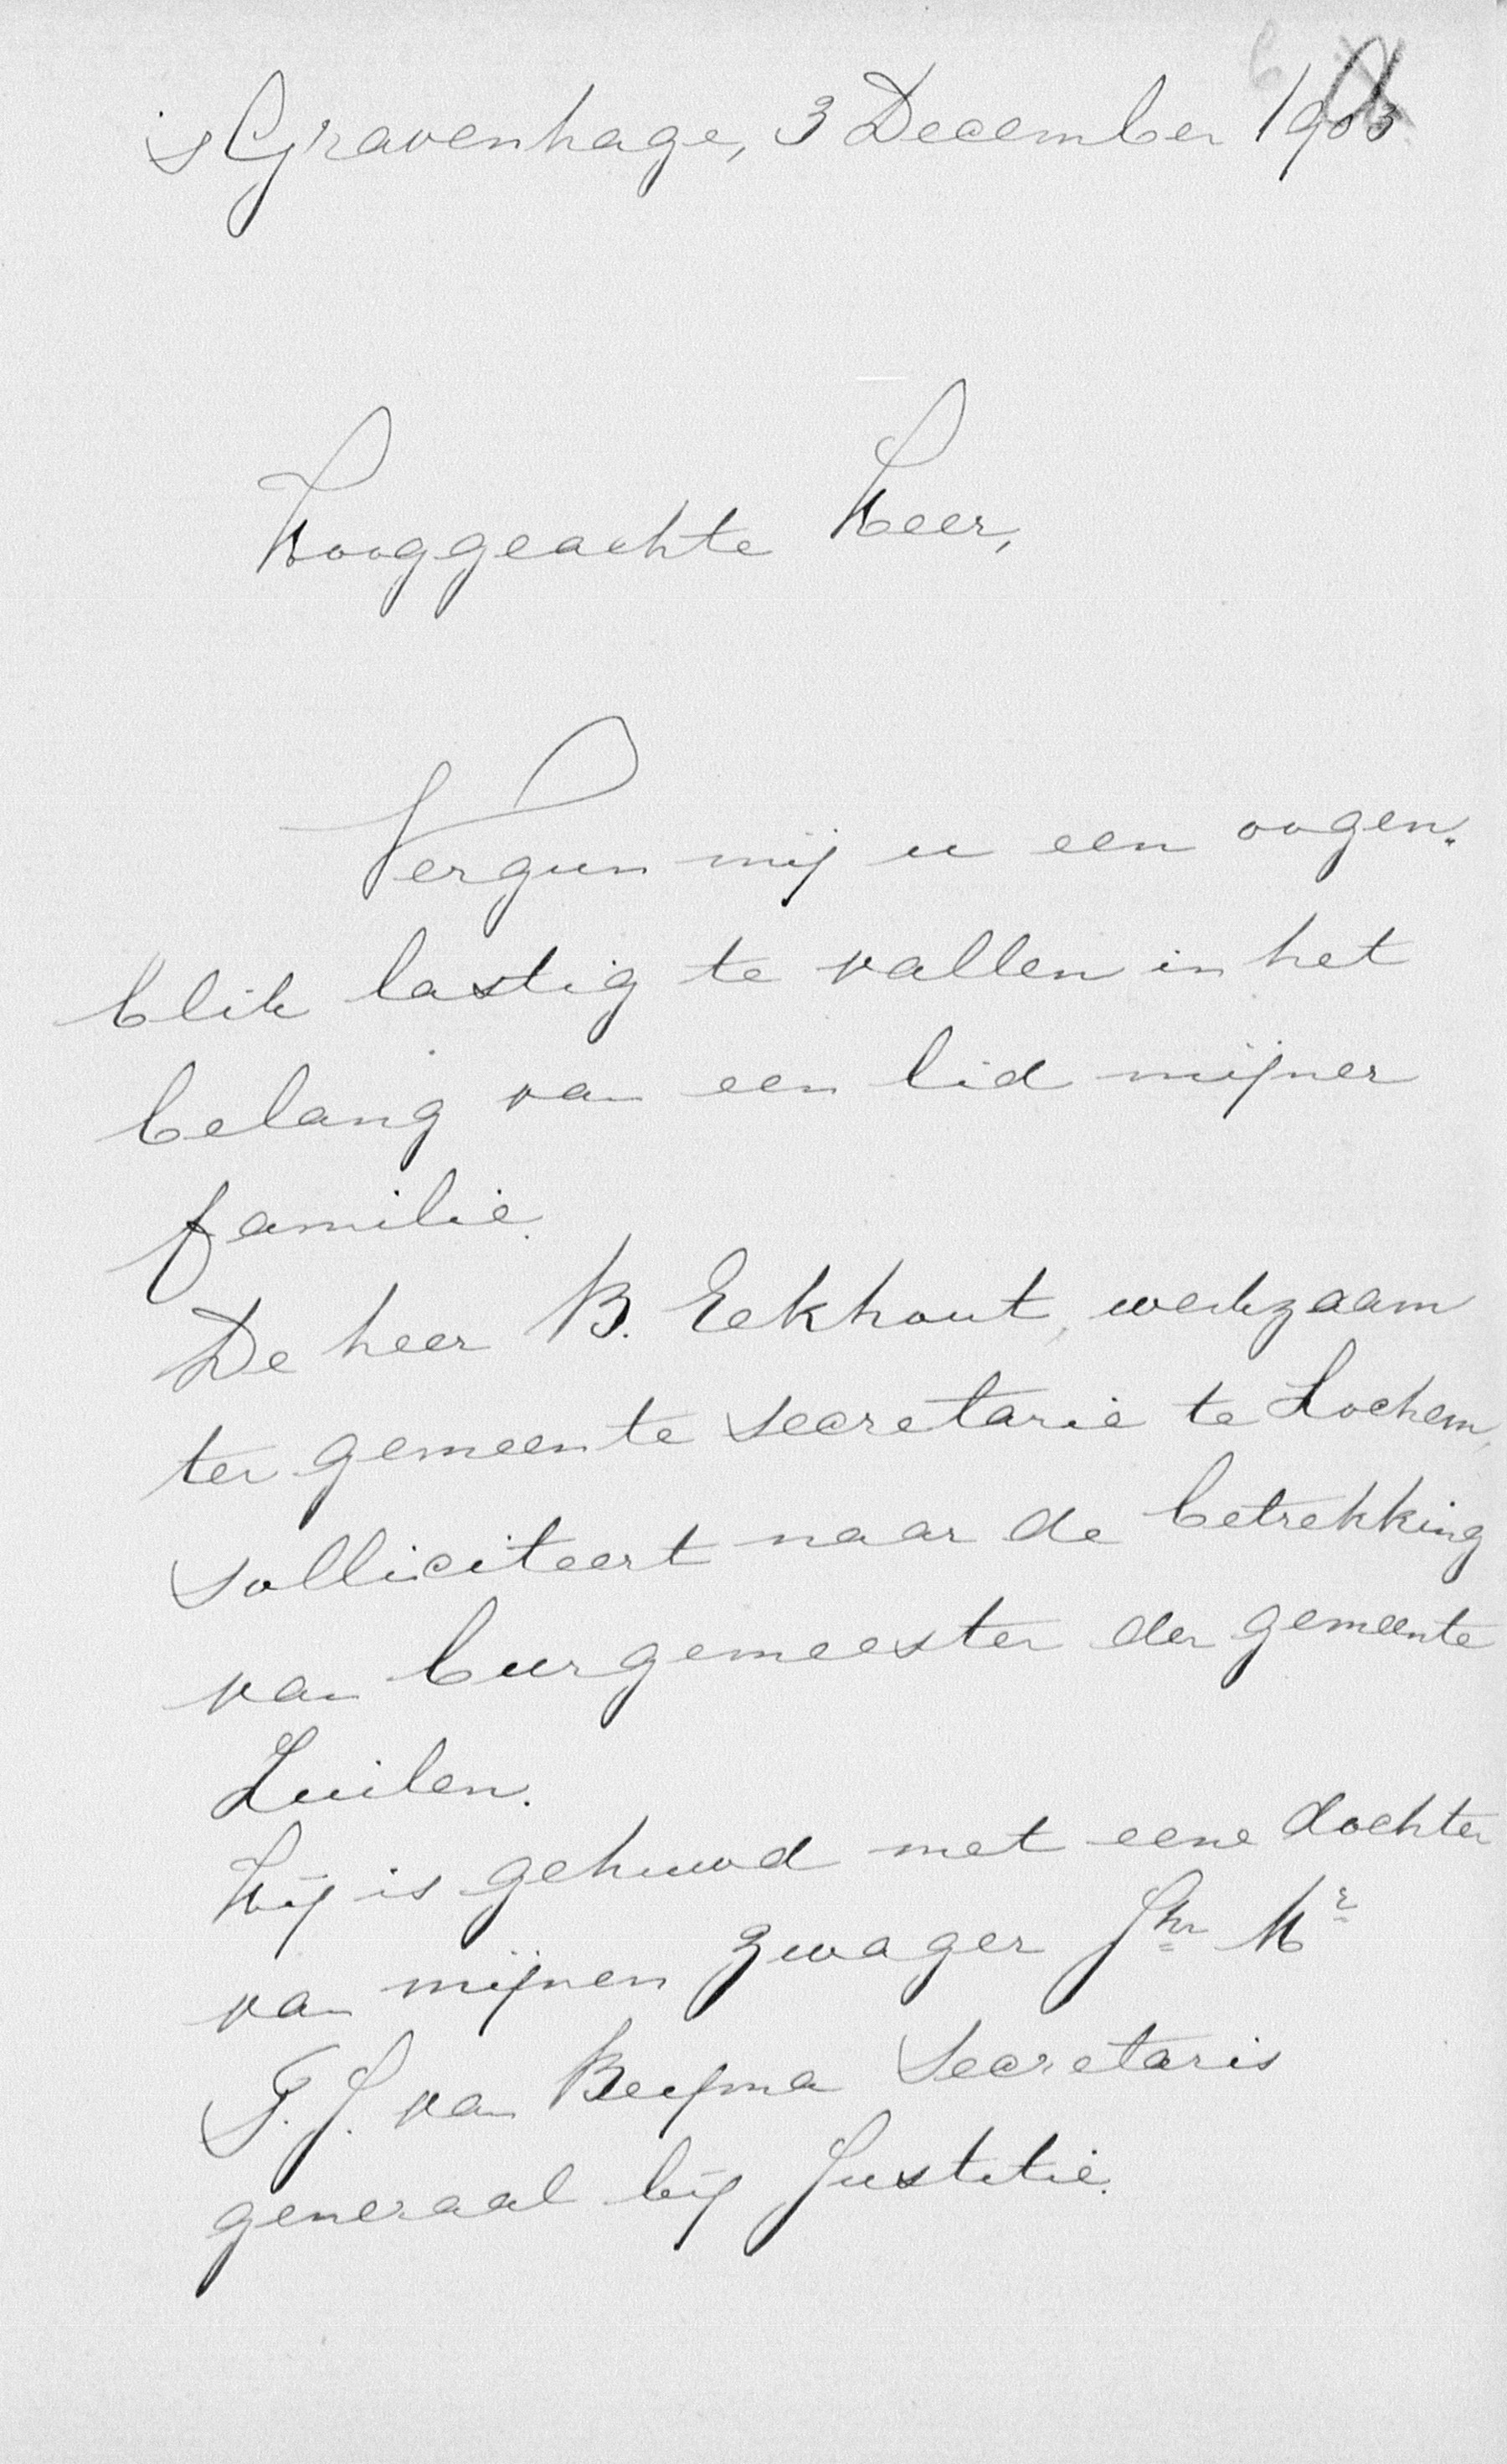 's Gravenhage, 3 December 1903
Hooggeachte Heer,
Vergun mij u een oogen„
blik lastig te vallen in het
belang van een lid mijner
familie.
De heer B. Eekhout, werkzaam
ter gemeente secretarie te Lochem,
solliciteert naar de betrekking
van burgemeester der gemeente
Zuilen.
Hij is gehuwd met eene dochter
van mijnen zwager Jhr Mr
F. J. van Beyma Secretaris
generaal bij Justitie.